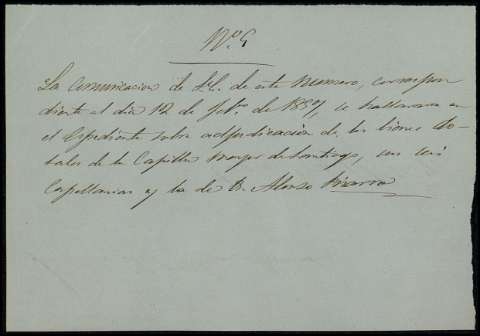 Nº 9
La comunicacion de S.E. de este numero, correspon
diente al dia 12 de Feb.o de 1859, se hallara en
el Espediente sobre adjudicacion de los bienes do-
tales de la Capilla mayor de Santiago, sus seis
Capellanias y la de D. Alonso Pizarro